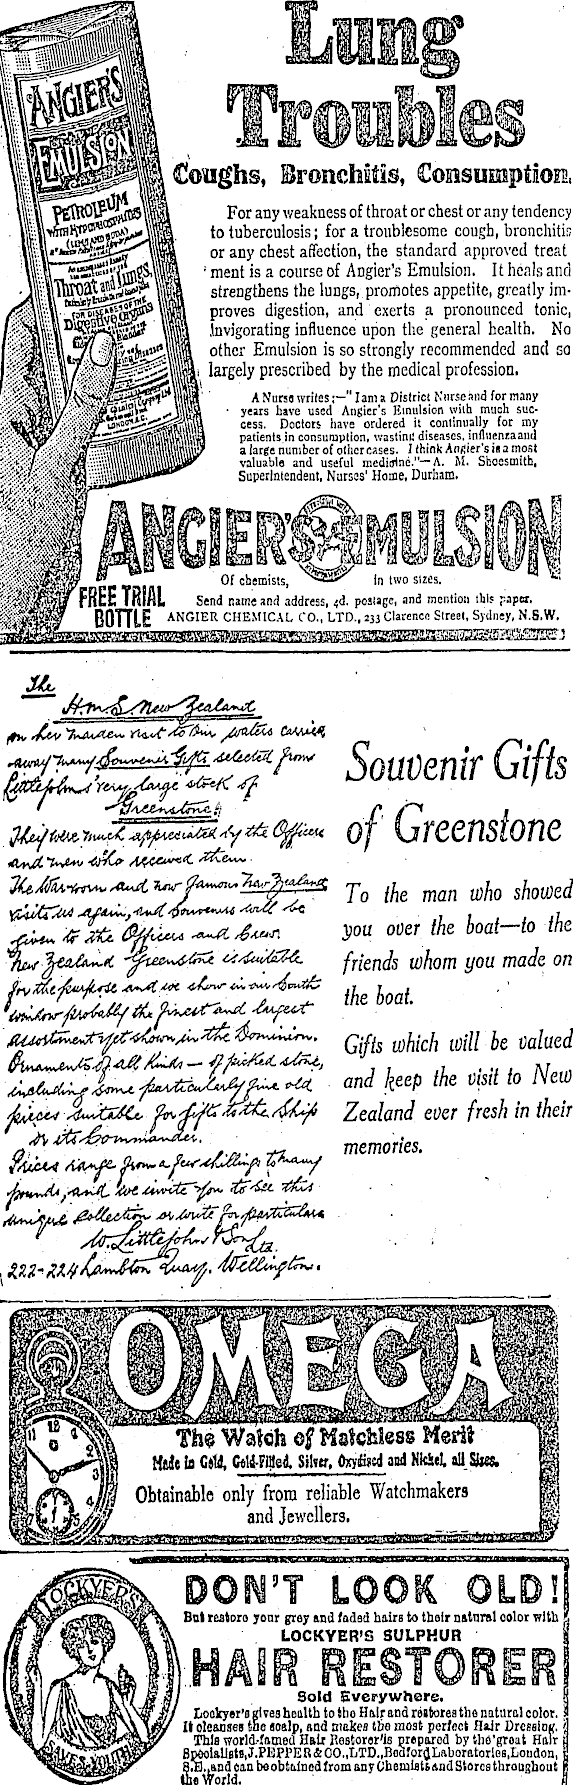 Lung
Troubles
Coughs, Bronchitis, Consumption.
ANGIER'S
EMULSION
PETROLEUM
WITH HYPOPHOSPHITES
(LIME AND SODA)
Throat and Lungs,
FOR DISEASES OF THE
Digestive Organs
For any weakness of throat or chest or any tendency
to tuberculosis; for a troublesome cough, bronchitis
or any chest affection, the standard approved treat
ment is a course of Angier's Emulsion. It heals and
strengthens the lungs, promotes appetite, greatly im-
proves digestion, and exerts a pronounced tonic,
invigorating influence upon the general health. No
other Emulsion is so strongly recommended and so
largely prescribed by the medical profession.
A Nurse writes:—"I am a District Nurse and for many
years have used Angier's Emulsion with much suc-
cess. Doctors have ordered it continually for my
patients in consumption, wasting diseases, influenza and
a large number of other cases. I think Angier's is a most
valuable and useful medicine."—A. M. Shoesmith,
Superintendent, Nurses' Home, Durham.
ANGIER'S EMULSION
Of chemists, in two sizes.
FREE TRIAL
BOTTLE
Send name and address, 4d. postage, and mention this paper.
ANGIER CHEMICAL CO., LTD., 233 Clarence Street, Sydney, N.S.W.
The
H.M.S. New Zealand
on her maiden visit to our waters carried
away many Souvenir Gifts selected from
Littlejohns' very large stock of
Greenstone.
They were much appreciated by the Officers
and men who received them.
The War-worn and now famous New Zealand
visits us again, and Souvenirs will be
given to the Officers and Crew.
New Zealand Greenstone is suitable
for the purpose and we show in our South
window probably the finest and largest
assortment yet shown in the Dominion.
Ornaments of all kinds — of picked stone,
including some particularly fine old
pieces suitable for gifts to the Ship
or its Commander.
Prices range from a few shillings to many
pounds, and we invite you to see this
unique collection or write for particulars
W. Littlejohn & Son Ltd.
222-224 Lambton Quay, Wellington.
Souvenir Gifts
of Greenstone
To the man who showed
you over the boat—to the
friends whom you made on
the boat.
Gifts which will be valued
and keep the visit to New
Zealand ever fresh in their
memories.
OMEGA
The Watch of Matchless Merit
Made in Gold, Gold-Filled, Silver, Oxydised and Nickel, all Sizes.
Obtainable only from reliable Watchmakers
and Jewellers.
LOCKYER'S
SAVES YOUTH
DON'T LOOK OLD!
But restore your grey and faded hairs to their natural color with
LOCKYER'S SULPHUR
HAIR RESTORER
Sold Everywhere.
Lockyer's gives health to the Hair and restores the natural color.
It cleanses the scalp, and makes the most perfect Hair Dressing.
This world-famed Hair Restorer is prepared by the great Hair
Specialists, J. PEPPER & CO., LTD., Bedford Laboratories, London,
S.E., and can be obtained from any Chemists and Stores throughout
the World.